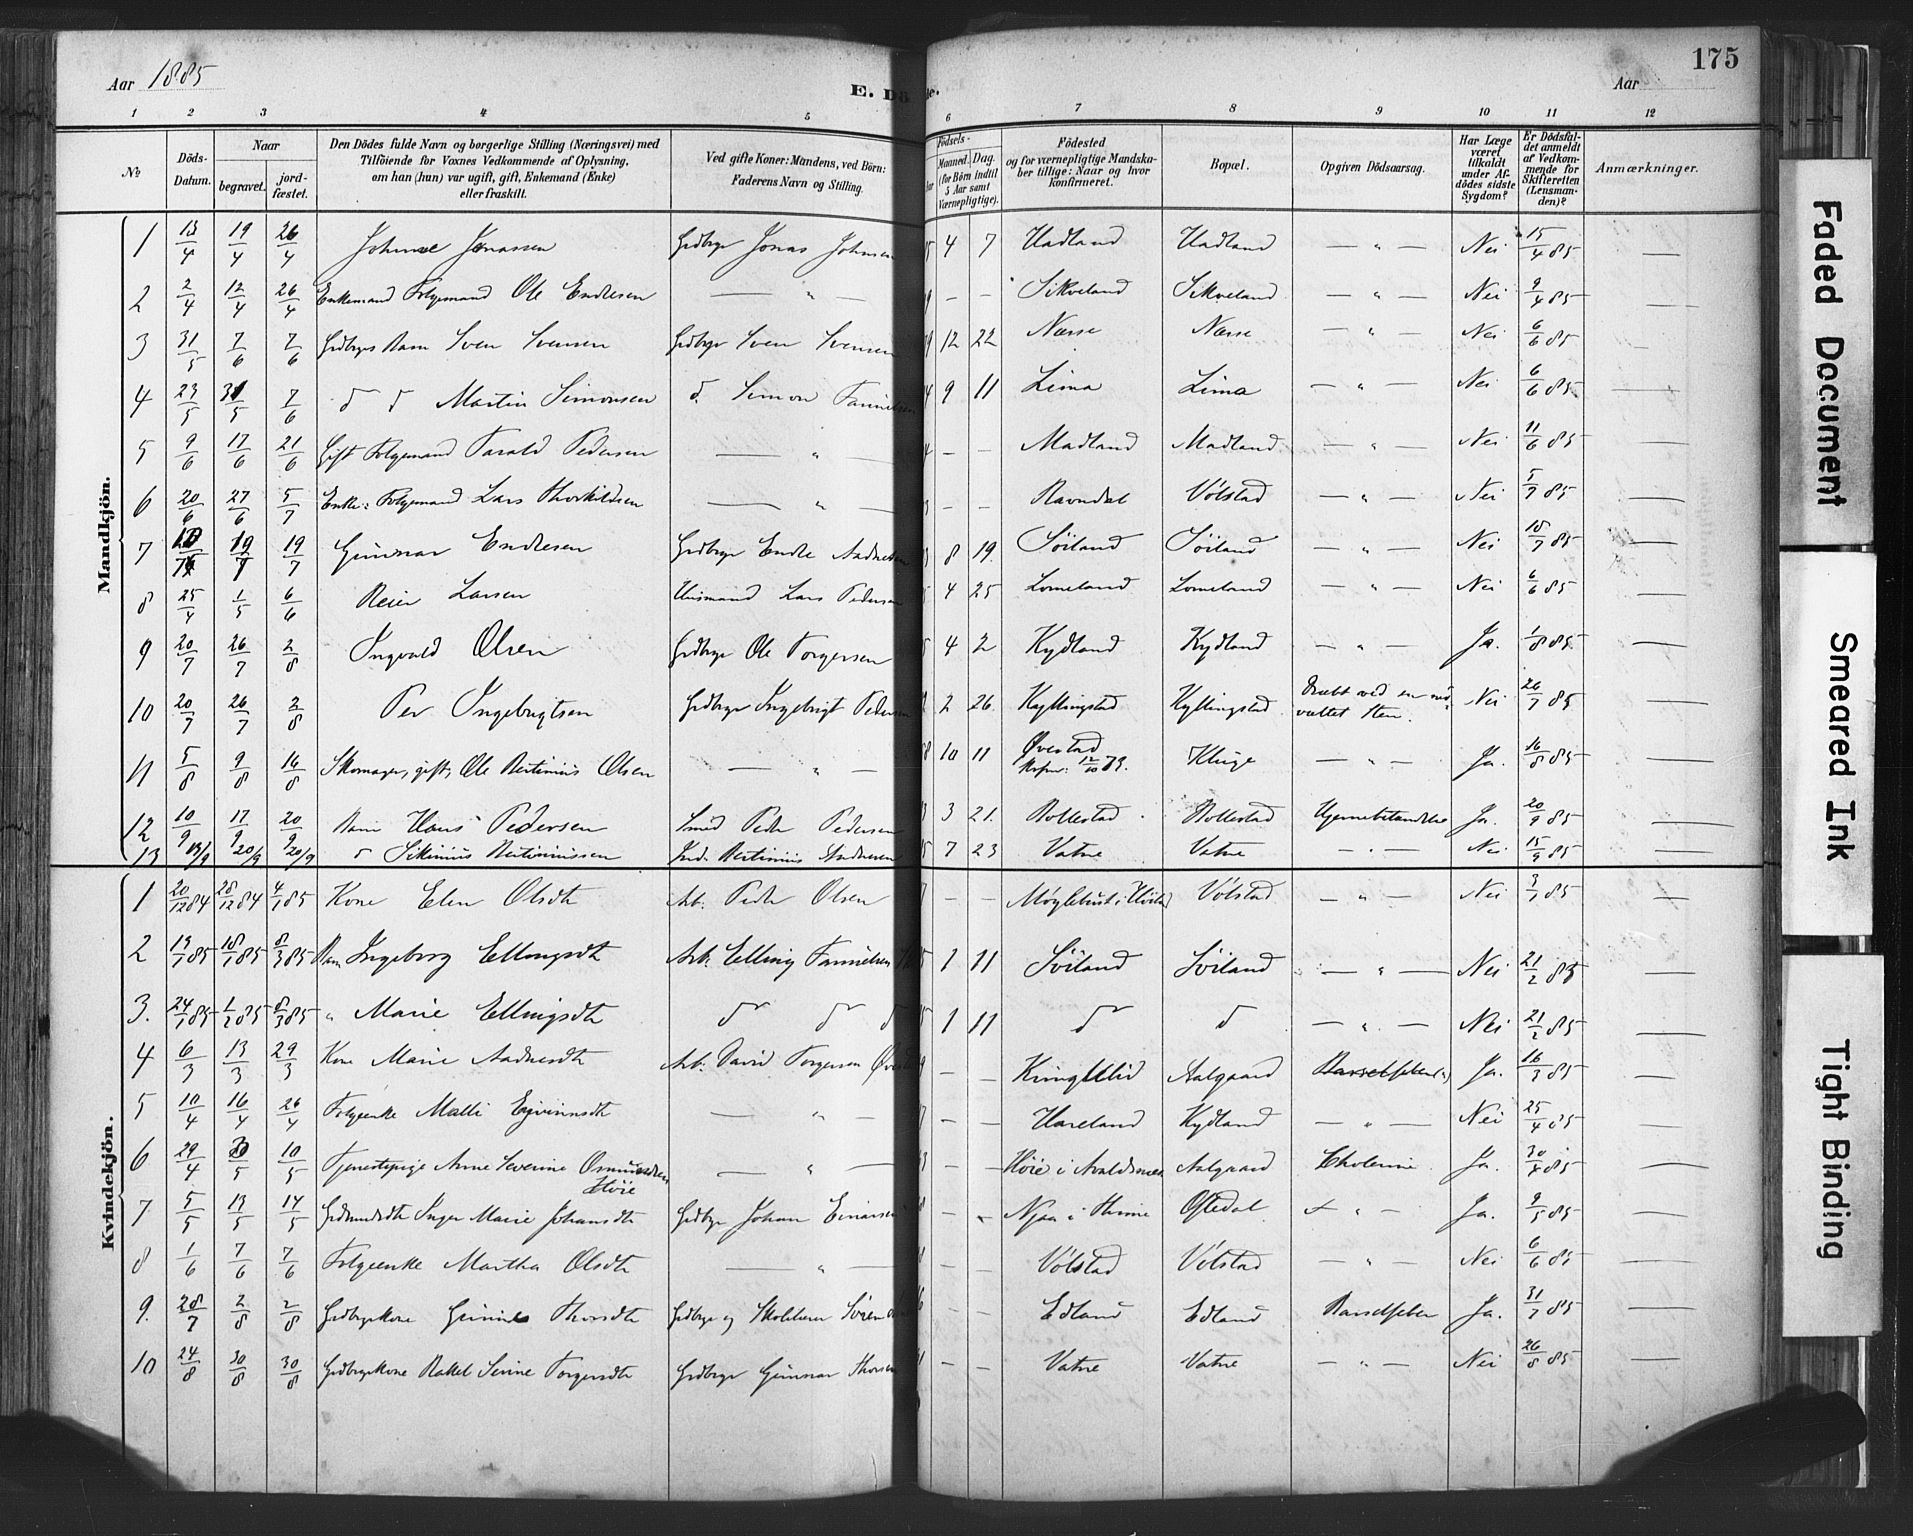 Aar 1885
E. Dö
de.
175
Aar
1 2 3 4 5 6 7 8 9 10 11 12
№
Döds-Datum.
Naar
begravet.
jordfæstet.
Den Dödes fulde Navn og borgerlige Stilling (Næringsvei) med Tilföiende for Voxnes Vedkommende af Oplysning, om han (hun) var ugift, gift, Enkemand (Enke) eller fraskilt.
Ved gifte Koner: Mandens, ved Börn: Faderens Navn og Stilling.
Födsels-
Maaned. Dag.
(for Börn indtil 5 Aar samt Værnepligtige).
Födested
og for værnepligtige Mandskaber tillige: Naar og hvor konfirmeret.
Bopæl.
Opgiven Dödsaarsag.
Har Læge været tilkaldt under Afdödes sidste Sygdom?
Er Dödsfaldet anmeldt af Vedkommende for Skifteretten (Lensmanden)?
Anmærkninger.
Mandkjön.
1 13/4 19/4 26/4 Johnne Jonassen Grdbrgr Jonas Johnsen 4 7 Hadland Hadland — „ — Nei 15/4 85 —
2 2/4 12/4 26/4 Enkemand Folgemand Ole Endresen — „ — — — Sikveland Sikveland — „ — Nei 9/4 85 —
3 31/5 7/6 7/6 Grdbrgrs Barn Sven Svensen Grdbrgr Sven Svensen 12 22 Næsse Næsse — „ — Nei 6/6 85 —
4 23/5 31/5 7/6 d d Martin Simonsen d. Simon 9 11 Lima Lima — „ — Nei 6/6 85 —
5 9/6 17/6 21/6 Gift Folgemand Tarald Pedersen — „ — — — Madland Madland — „ — Nei 11/6 85 —
6 20/6 27/6 5/7 Enke: Folgemand Lars Thorkildsen — „ — — — Ravndal Vølstad — „ — Nei 5/7 85 —
7 19/7 19/7 Gunnar Endresen Grdbrgr Endre 8 19 Søiland Søiland — „ — Nei 18/7 85 —
8 25/4 1/5 6/6 Reier Larsen Husmand Lars Pedersen 4 25 Lomeland Lomeland — „ — Nei 6/6 85 —
9 20/7 26/7 2/8 Ingvald Olsen Grdbrgr Ole Torgersen 4 2 Kydland Kydland — „ — Ja. 1/8 85 —
10 20/7 26/7 2/8 Per Ingebrigtsen Grdbrgr Ingebrigt Pedersen 2 26 Kyllingstad Kyllingstad Dræbt ved en ned-
væltet Sten. Nei 26/7 85 —
11 5/8 9/8 16/8 Skomager, gift, Ole Bertinius Olsen — „ — 10 11 Øvestad
Konf: 12/10 79. Kluge — „ — Ja. 16/8 85 —
12 10/9 17/9 20/9 Barn Hans Pedersen Smed Peder Pedersen 3 21. Bollestad Bollestad Hjernebetændelse Ja. 20/9 85 —
13 13/9 20/9 20/9 d Sikinius Bertiniussen Bertinius Andersen 7 23 Vatne Vatne — „ — Nei 15/9 85 —
Kvindekjön.
1 20/12 84 28/12 84 4/1 85 Kone Elen Olsdtr Arb: Peder Olsen — — Møglebust i Høisl Vølstad — „ — Nei 3/1 85 —
2 13/1 85 18/1 85 8/3 85 Barn Ingeborg Ellingsdtr Arb: Elling 1 11 Søiland Søiland — „ — Nei 21/2 85 —
3. 24/1 85 1/2 85 8/3 85 „ Marie Ellingsdtr d d d 1 11 d d — „ — Nei 21/2 85 —
4 6/3 13/3 29/3 Kone Marie Aadnesdtr Arb: David Torgersen — — Kringlelid Aalgaard Barselfeber(?) Ja. 16/3 85 —
5 10/4 16/4 26/4 Folgeenke Malli Eyvinnsdtr — „ — — — Hareland Kydland — „ — Nei 25/4 85 —
6 29/4 10/5 Tjenestepige Anne Severine Osmundsen
Høie — „ — — — Høie i Avaldsnes Aalgaard Cholerine Ja. 30/4 85 —
7 5/5 13/5 14/5 Inger Marie Johansdtr Grdbrgr Johan Einarsen — — Njaa i Thime Oftedal — „ — Ja. 9/5 85 —
8 1/6 7/6 7/6 Folgeenke Martha Olsdtr — „ — — — Vølstad Vølstad — „ — Nei 6/6 85 —
9. 28/7 2/8 2/8 Grdbrgrkone Gunnild Thorsdtr Grdbrgr og Skolelærer Sören — — Edland Edland Barselfeber Ja. 31/7 85 —
10 24/8 30/8 30/8 Grdbrgrkone Rakel Serine Torgersdtr Grdbrgr Gunnar Thorsen — — Vatne Vatne — „ — Nei 26/8 85 —
Faded Document
Smeared Ink
Tight Binding